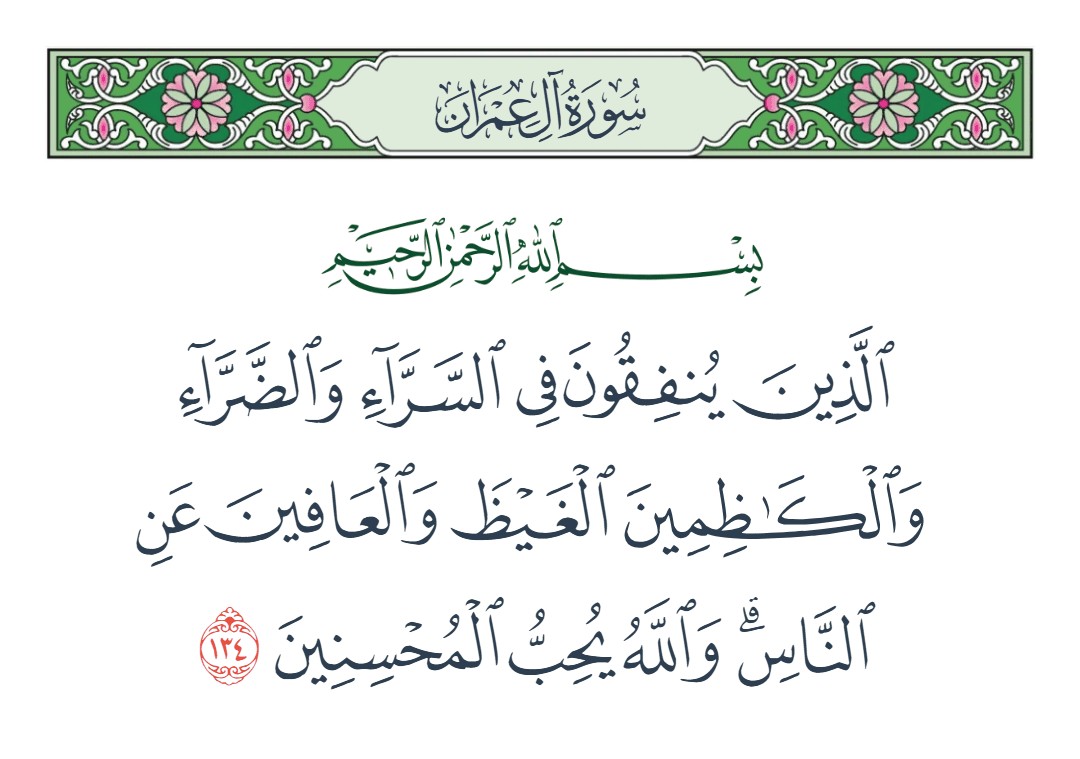 سُورَةُ آلِ عِمْرَان
بِسْمِ ٱللَّهِ ٱلرَّحْمَٰنِ ٱلرَّحِيمِ
ٱلَّذِينَ يُنفِقُونَ فِى ٱلسَّرَّآءِ وَٱلضَّرَّآءِ
وَٱلْكَـٰظِمِينَ ٱلْغَيْظَ وَٱلْعَافِينَ عَنِ
ٱلنَّاسِ ۗ وَٱللَّهُ يُحِبُّ ٱلْمُحْسِنِينَ ١٣٤